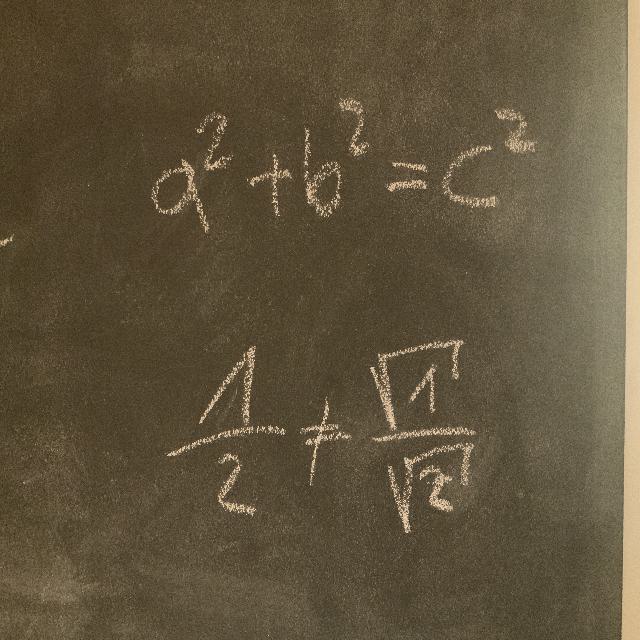 a² + b² = c²
1/2 ≠ √1/√2